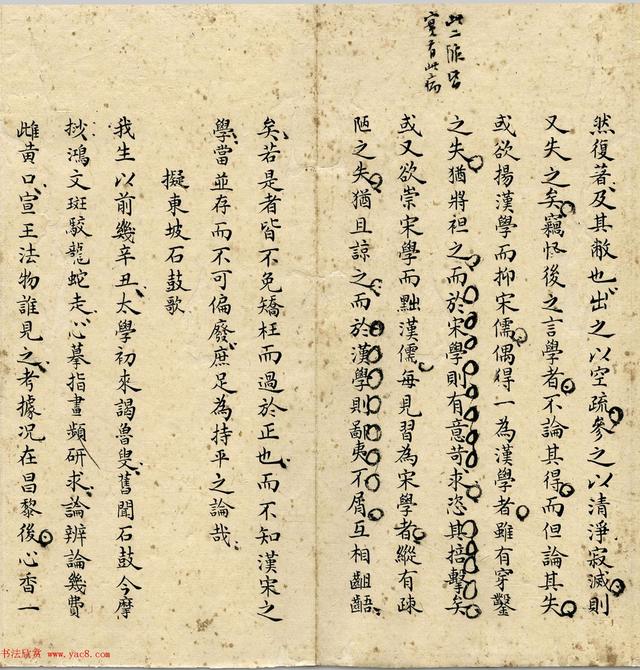 此二陋皆
實有此病
然復著及其敝也出之以空疏參之以清淨寂滅則
又失之矣竊怪後之言學者不論其得而但論其失
或欲揚漢學而抑宋儒偶得一為漢學者雖有穿鑿
之失猶將袒之而於宋學則有意苛求恣其掊擊矣
或又欲崇宋學而黜漢儒每見習為宋學者縱有疎
陋之失猶且諒之而於漢學則鄙夷不屑互相齟齬
矣若是者皆不免矯枉而過於正也而不知漢宋之
學當並存而不可偏廢庶足為持平之論哉
擬東坡石鼓歌
我生以前幾辛丑太學初來謁魯叟舊聞石鼓今摩
抄鴻文斑駮龍蛇走心摹指畫頻研求論辨論幾費
雌黃口宣王法物誰見之考據況在昌黎後心香一
书法欣赏 www.yac8.com